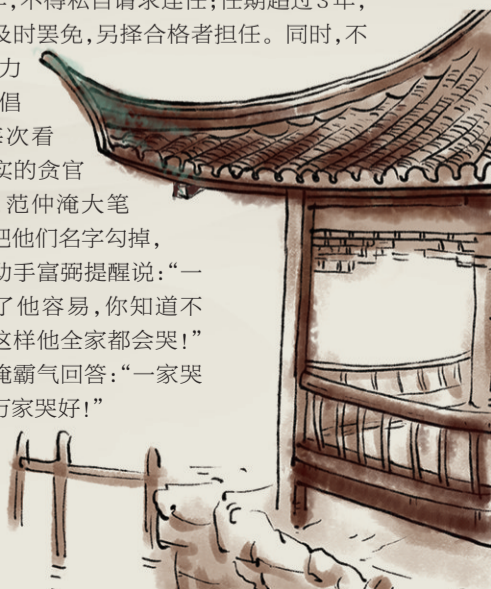 ,不得私自请求连任;任期超过3年,
及时罢免,另择合格者担任。同时,不
力
倡
次看
实的贪官
范仲淹大笔
把他们名字勾掉,
助手富弼提醒说:“一
了他容易,你知道不
这样他全家都会哭!”
淹霸气回答:“一家哭
万家哭好!”